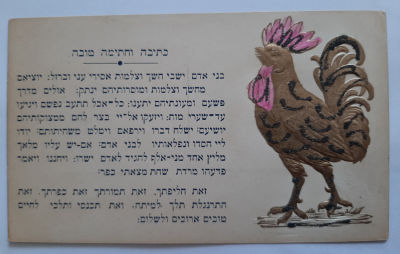 כתיבה וחתימה טובה
בני אדם ישבי חשך וצלמות אסירי עני וברזל: יוציאם
מחשך וצלמות ומוסרותיהם ינתק: אולים מדרך
פשעם ומעונתיהם יתענו: כל־אכל תתעב נפשם ויגיעו
עד־שערי מות: ויזעקו אל־יי בצר להם ממצוקותיהם
יושיעם: ישלח דברו וירפאם וימלט משחיתותם: יודו
ליי חסדו ונפלאותיו לבני אדם: אם־יש עליו מלאך
מליץ אחד מני־אלף להגיד לאדם ישרו: ויחננו ויאמר
פדעהו מרדת שחת מצאתי כפר:
זאת חליפתך, זאת תמורתך זאת כפרתך, זאת
התרנגלת תלך למיתה, ואת תכנסי ותלכי לחיים
טובים ארוכים ולשלום: